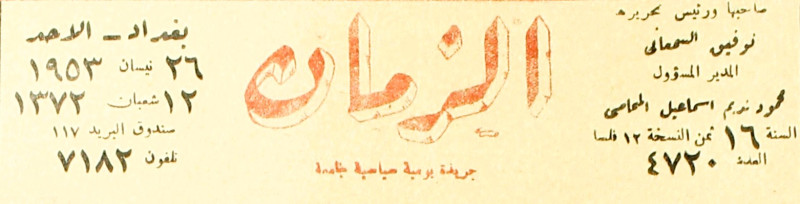 صاحبها ورئيس تحريره
توفيق السمعاني
المدير المسؤول
محمود نديم اسماعيل المحامي
السنة ١٦ ثمن النسخة ١٢ فلسا
العدد ٤٧٢٠
الزمان
جريدة يومية سياسية جامعة
بغداد - الاحد
٢٦ نيسان ١٩٥٣
١٢ شعبان ١٣٧٢
صندوق البريد ١١٧
تلفون ٧١٨٢